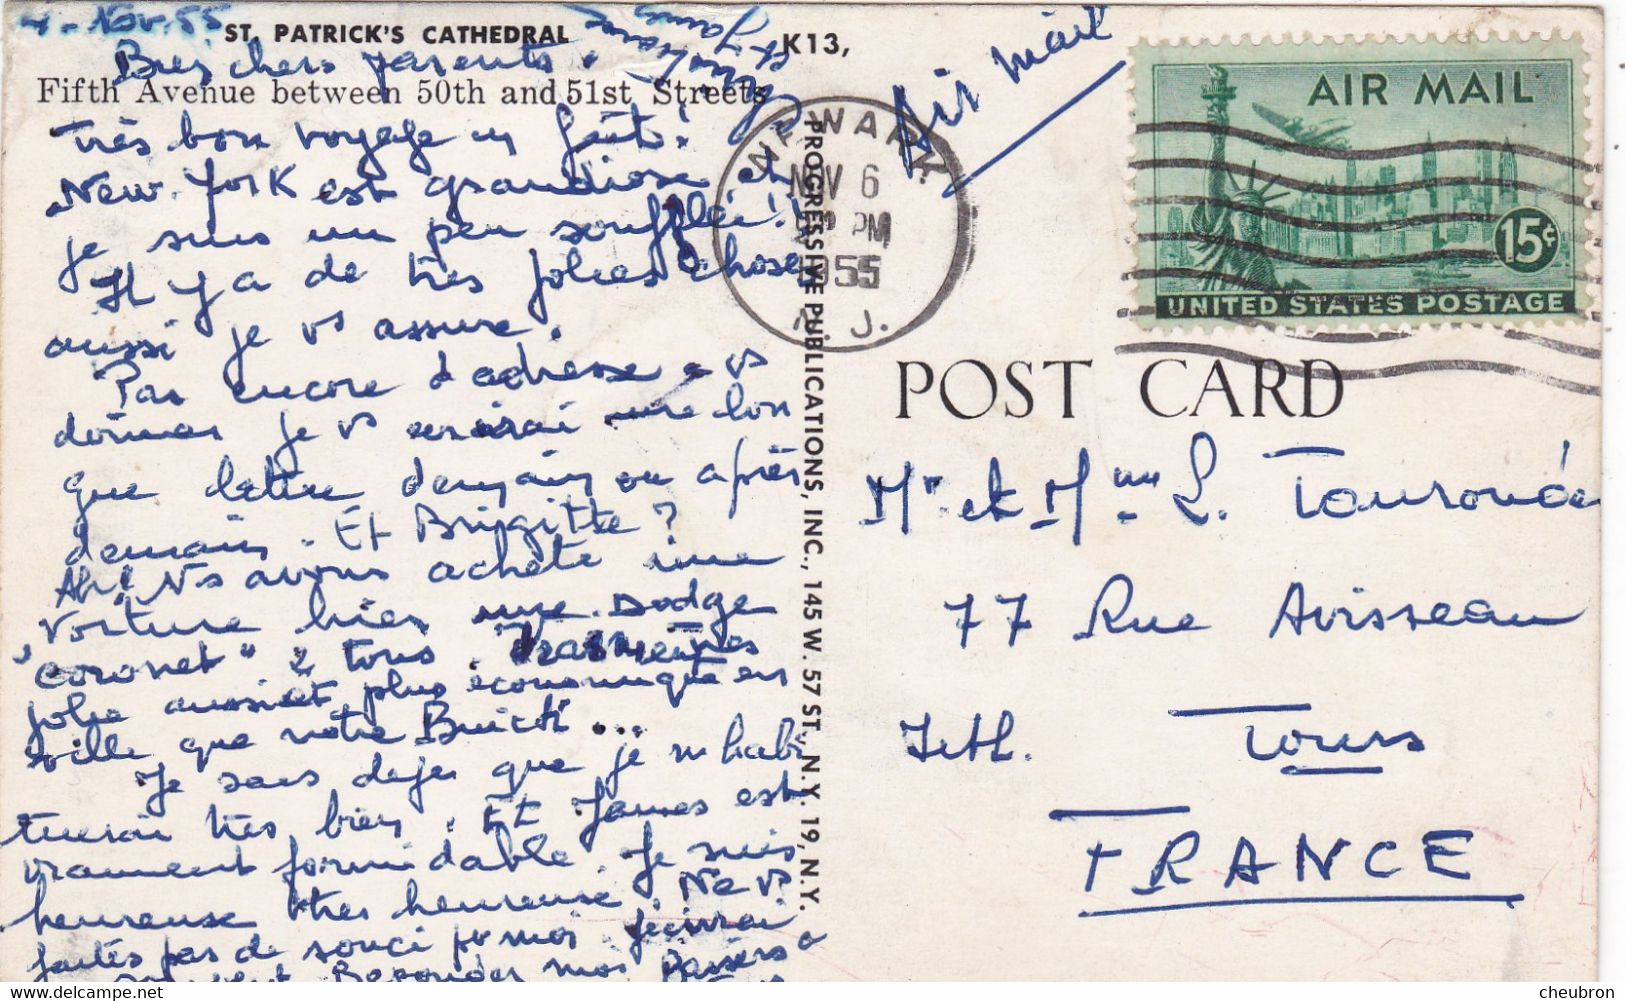 Nov. 55
ST. PATRICK'S CATHEDRAL
K13,
Bien chers parents.
Fifth Avenue between 50th and 51st Streets
très bon voyage en fait!
New-York est grandiose et
je suis un peu soufflée!!
Il y a de très jolies choses
aussi je vs assure.
Pas encore d'adresse a vs
donner je vs ecrirai une lon
gue lettre demain ou après
demain. Et Brigitte?
Ah! Ns avons acheté une
voiture hier une Dodge
"coronet" 2 tons. très
jolie aussi et plus économique en
ville que notre Buick...
Je sais deja que je m'habi
tuerai très bien. Et James est
vraiment formidable. Je suis
heureuse très heureuse. Ne vs
faites pas de souci pr moi. J'écrirai
et James
PROGRESSIVE PUBLICATIONS, INC., 145 W. 57 ST., N.Y. 19, N.Y.
NEWARK
NOV 6
PM
1955
N. J.
Air Mail
AIR MAIL
15¢
UNITED STATES POSTAGE
POST CARD
Mr et Mme L. Touronde
77 Rue Avisseau
Tours
FRANCE
cheubron